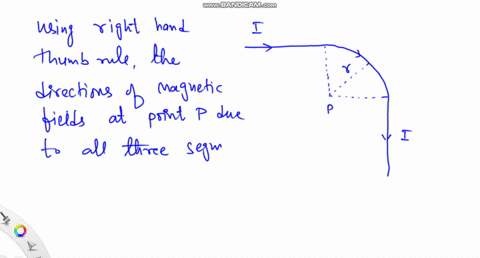 WWW.BANDICAM.COM
using right hand
thumb rule, the
directions of magnetic
fields at point P due
to all three segm
I
r
P
I